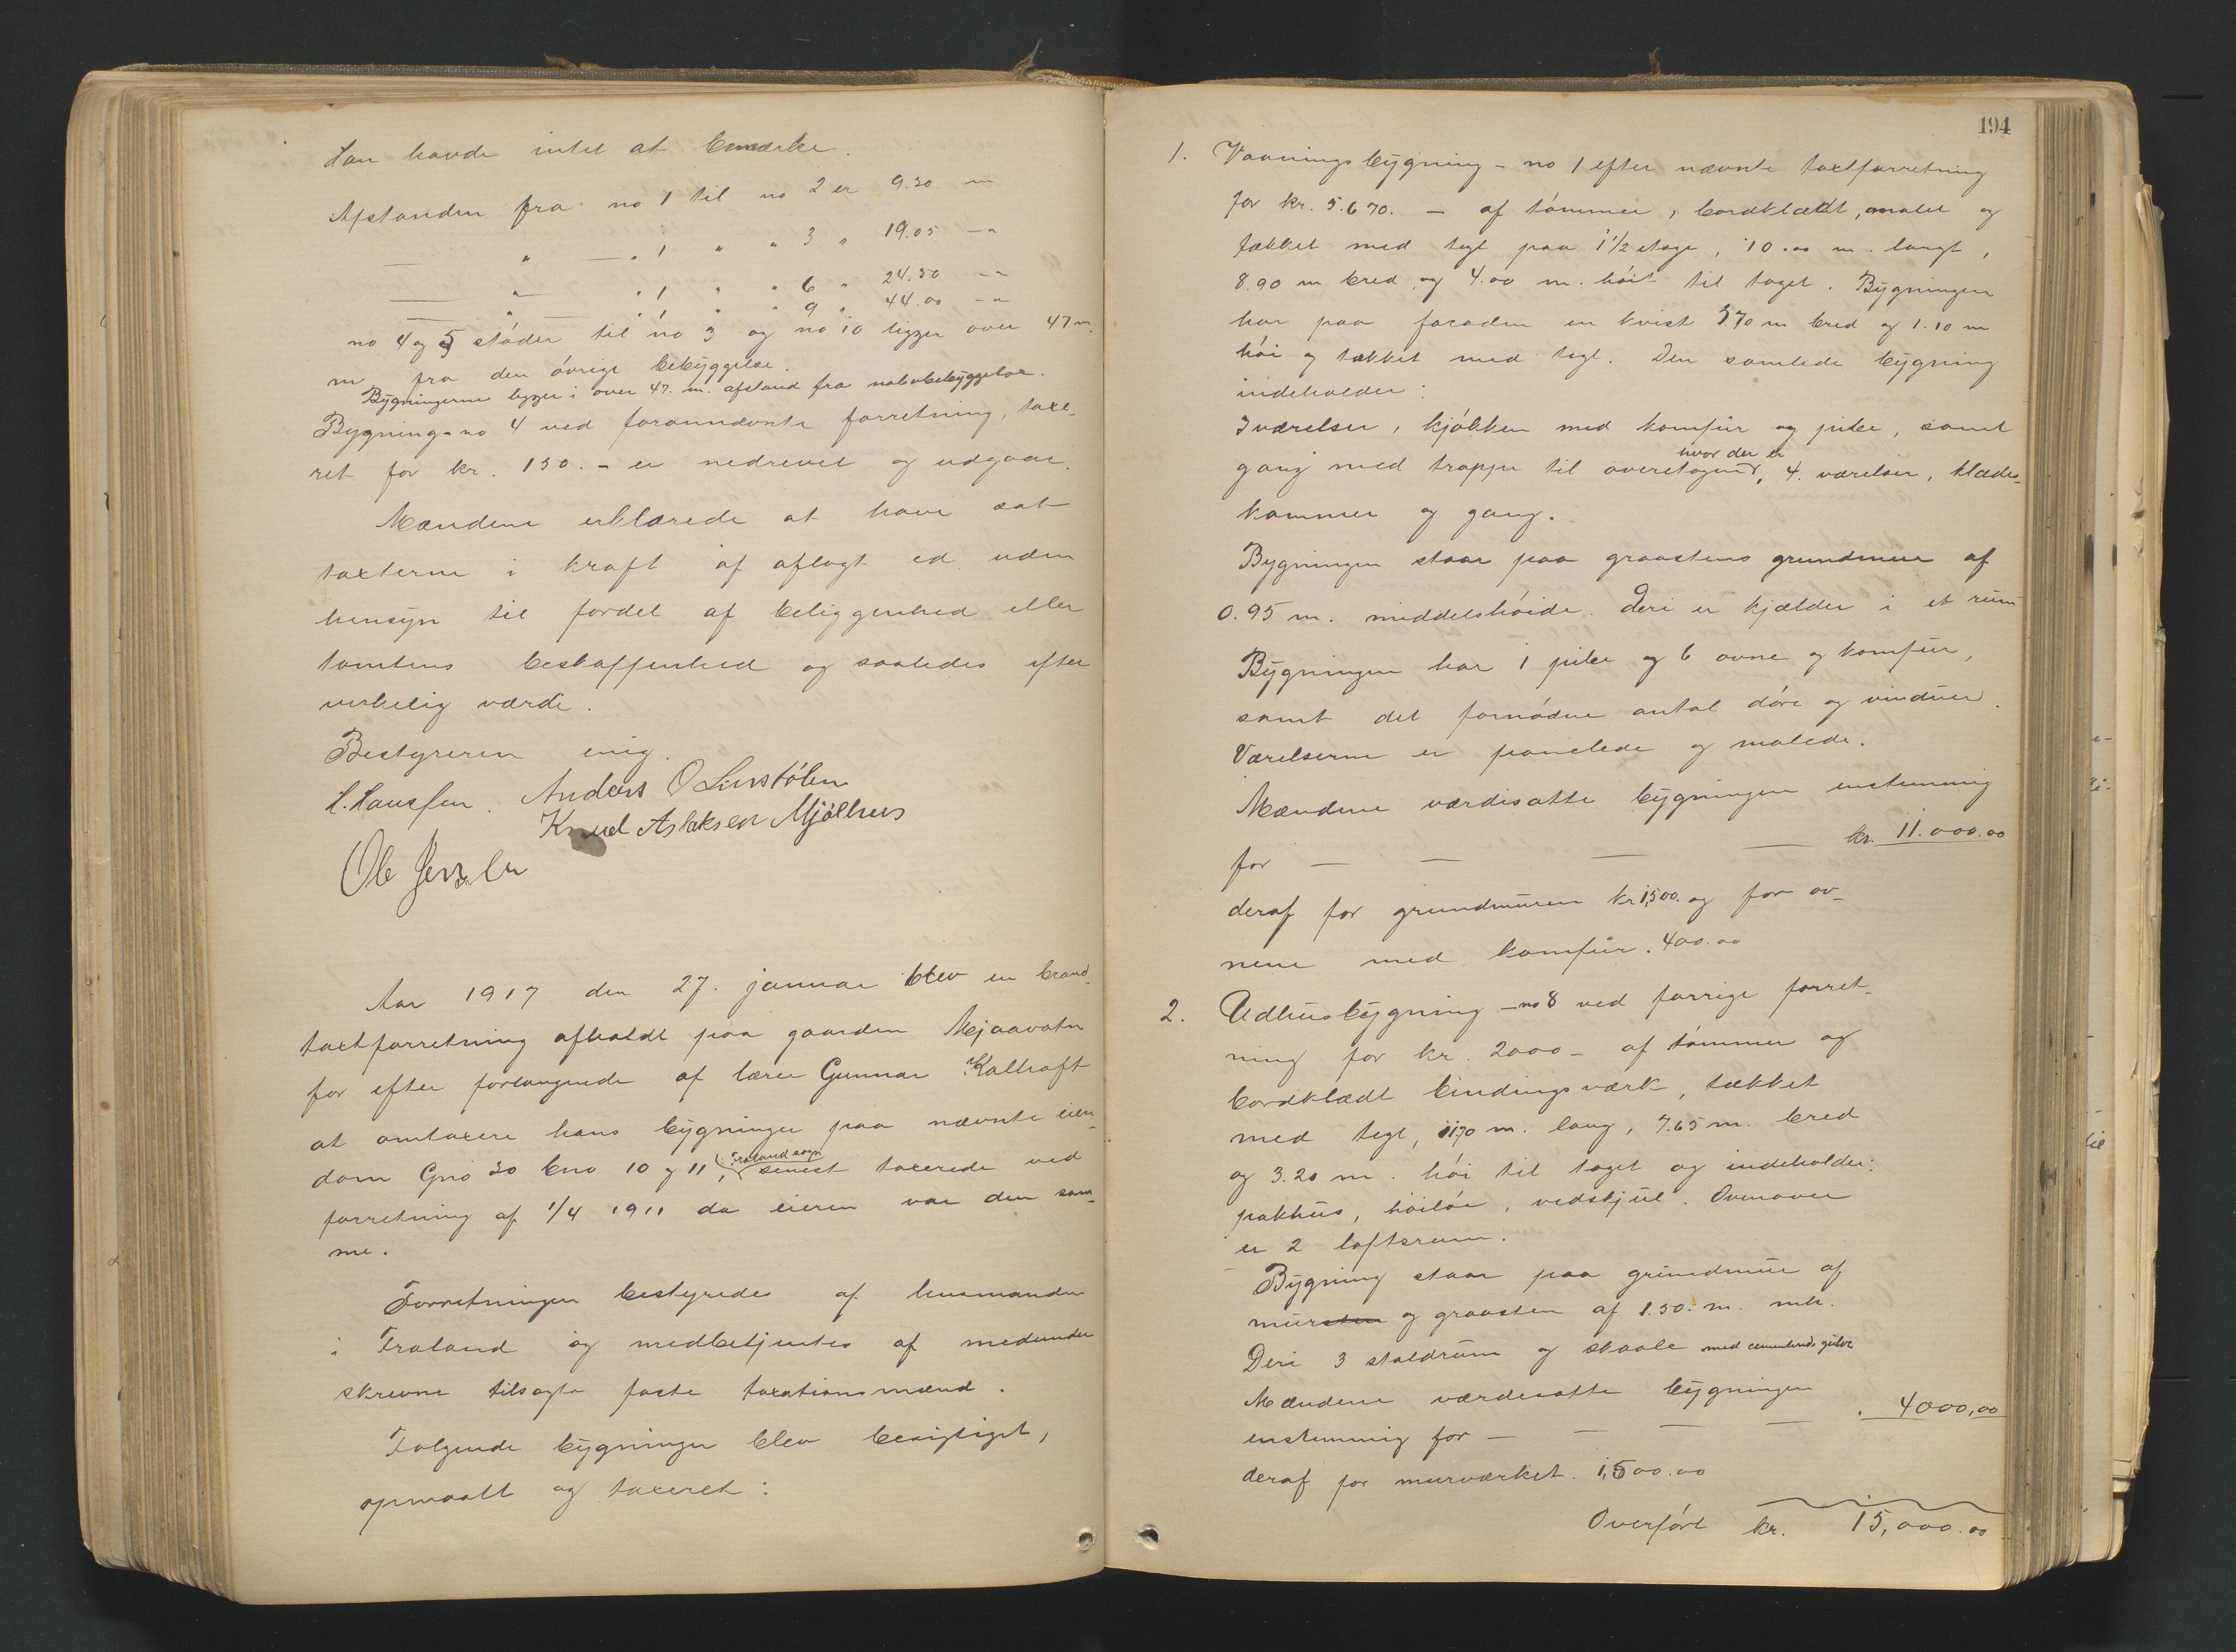 Han havde intet at bemærke.
Afstanden fra no 1 til no 2 er 9.30 m
— " — " 1 " " 3 " 19.05 — "
— " — " 1 " " 6 " 24.50 — "
— " — " 1 " " 9 " 44.00 — "
no 4 og 5 støder til no 3 og no 10 ligger over 47 m.
m fra den øvrige bebyggelse.
Bygningerne ligger i over 47. m. afstand fra nabobebyggelse.
Bygning no 4 ved forannævnte forretning, taxe-
ret for kr. 150.- er nedrevet og udgaar.
Mændene erklærede at have sat
taxterne i kraft af aflagt ed uden
hensyn til fordel af beliggenhed eller
tomtens beskaffenhed og saaledes efter
virkelig værdi.
Bestyreren enig.
H. Hansen. Anders O
Knud Aslaksen Mjølhus
Ole Jensen
Aar 1917 den 27. januar blev en brand-
taxtforretning afholdt paa gaarden Mjaavatn
for efter forlangende af lærer Gunnar Kalhaft
at omtaxere hans bygninger paa nævnte eien-
dom Gno 30 bno 10 og 11, Froland sogn senest taxerede ved
forretning af 1/4 1911 da eieren var den sam-
me.
Forretningen bestyredes af lensmanden
i Froland og medbetjentes af medunder
skrevne tilsagte faste taxationsmænd.
Følgende bygninger blev besigtiget,
opmaalt og taxeret:
194
1. Vaaningsbygning - no 1 efter nævnte taxtforretning
for kr. 5.670. — af tømmer, bordklædt, malet og
tækket med tegl paa 1 1/2 etage, 10.00 m. langt,
8.90 m bred og 4.00 m. høit til taget. Bygningen
har paa facaden en kvist 3.70 m bred og 1.10 m
høi og tækket med tegl. Den samlede bygning
indeholder:
3 værelser, kjøkken med komfur og pibe, samt
gang med trappe til overetagen, hvor der er 4 værelser, klædes-
kammer og gang.
Bygningen staar paa graastens grundmur af
0.95 m. middelshøide. Deri er kjælder i et rum
Bygningen har 1 pibe og 6 ovne og komfur,
samt det fornødne antal døre og vinduer.
Værelserne er panelede og malede.
Mændene værdisatte bygningen enstemmig
for — — — — kr. 11.000.00
deraf for grundmuren kr 1,500. og for ov-
nene med komfur. 400.00
2. Udhusbygning - no 8 ved forrige forret-
ning for kr. 2000 - af tømmer og
bordklædt bindingsværk, tækket
med tegl, 11.70 m. lang, 7.65 m. bred
og 3.20 m. høi til taget og indeholder:
pakhus, høilør, vedskjul. Ovenover
er 2 loftsrum.
Bygning staar paa grundmur af
mursten og graasten af 1.50. m. mh.
Deri 3 staldrum og skaale med cementerede gulve
Mændene værdesatte bygningen
enstemmig for — — — — . 4000,00
deraf for murværket. 1,500.00
Overført kr. 15,000.00